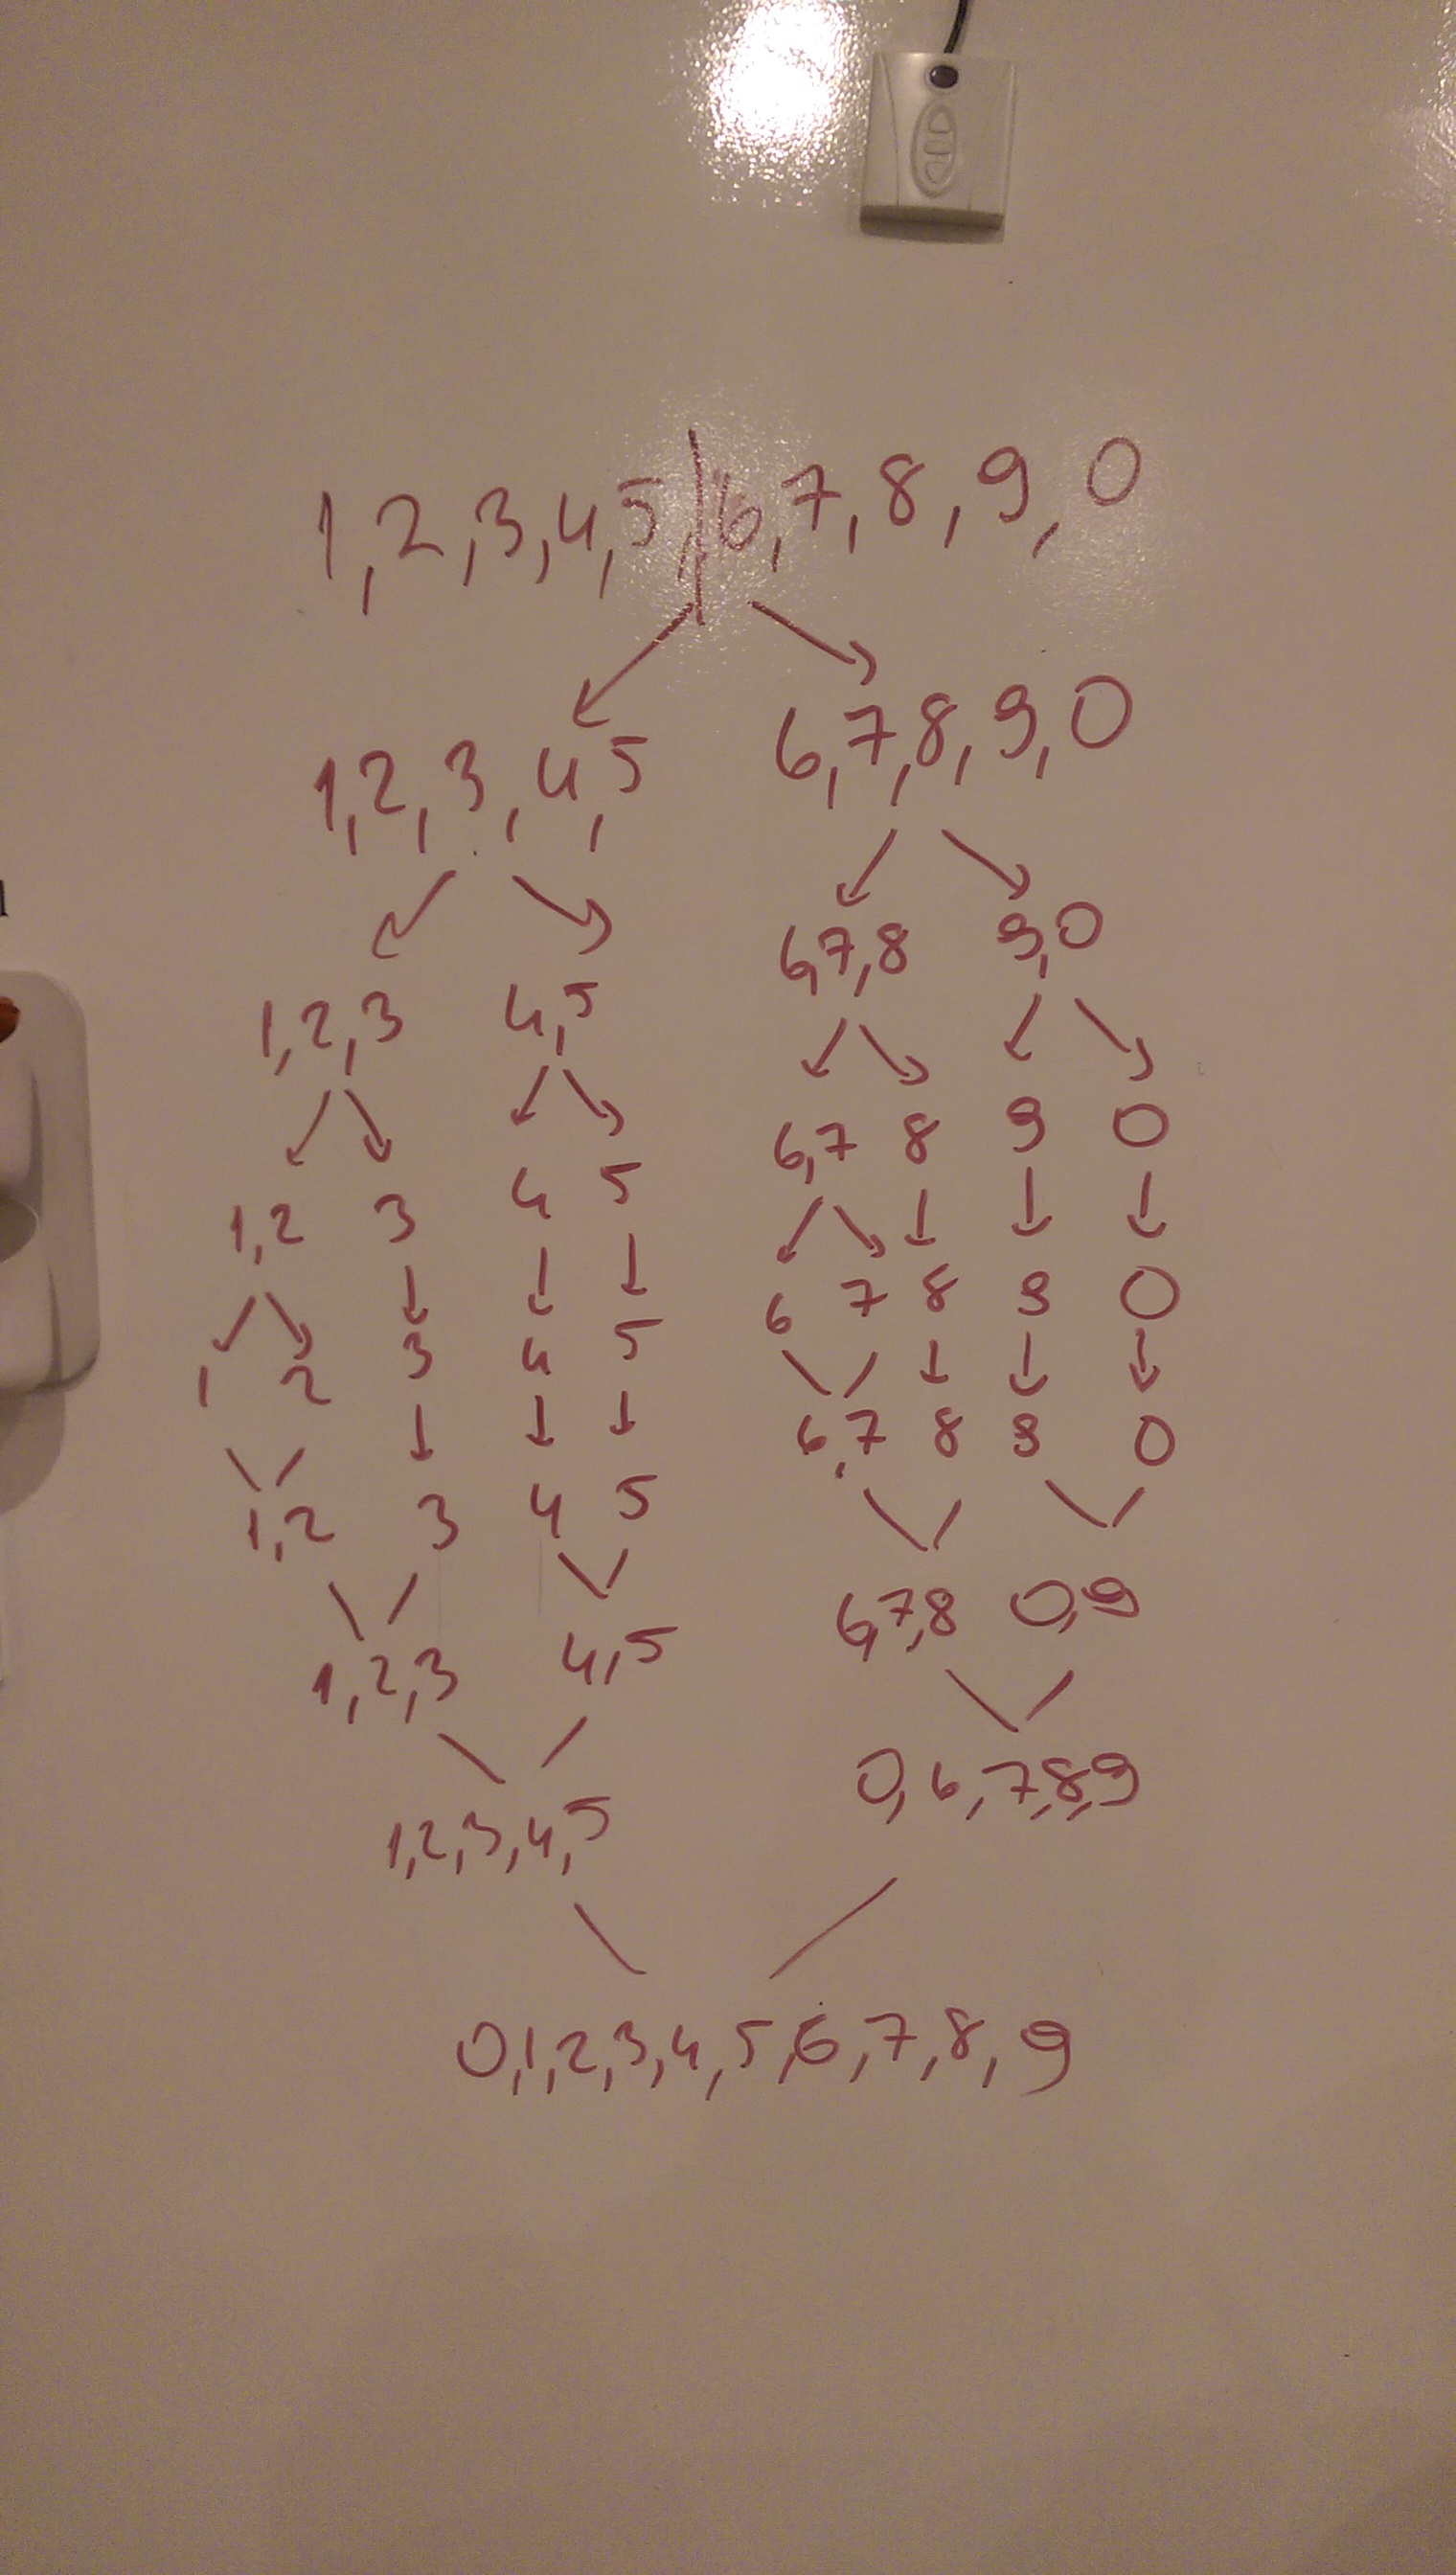 1,2,3,4,5,6,7,8,9,0
1,2,3,4,5 6,7,8,9,0
6,7,8 9,0
1,2,3 4,5
6,7 8 9 0
1,2 3 4 5
6 7 8 9 0
1 2 3 4 5
6,7 8 9 0
1,2 3 4 5
6,7,8 0,9
1,2,3 4,5
0,6,7,8,9
1,2,3,4,5
0,1,2,3,4,5,6,7,8,9